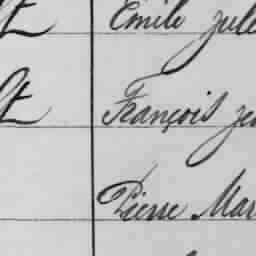 Emile Jule
François Je
Pierre Mar